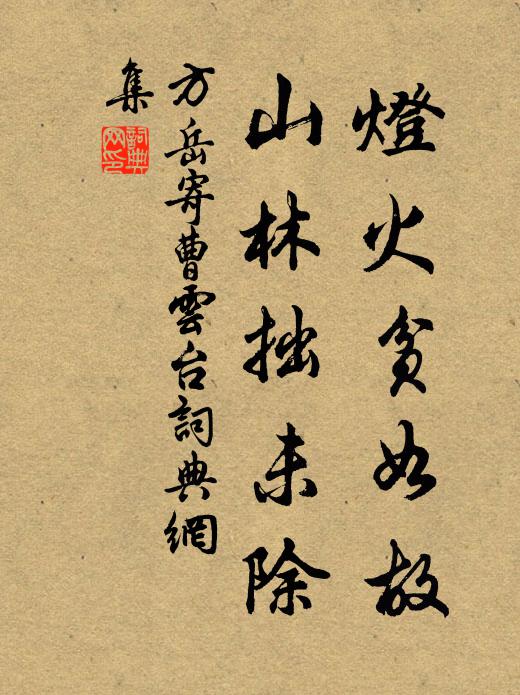 燈火貧如故
山林拙未除
方岳寄曹雲台詞典網
集
詞典
网印